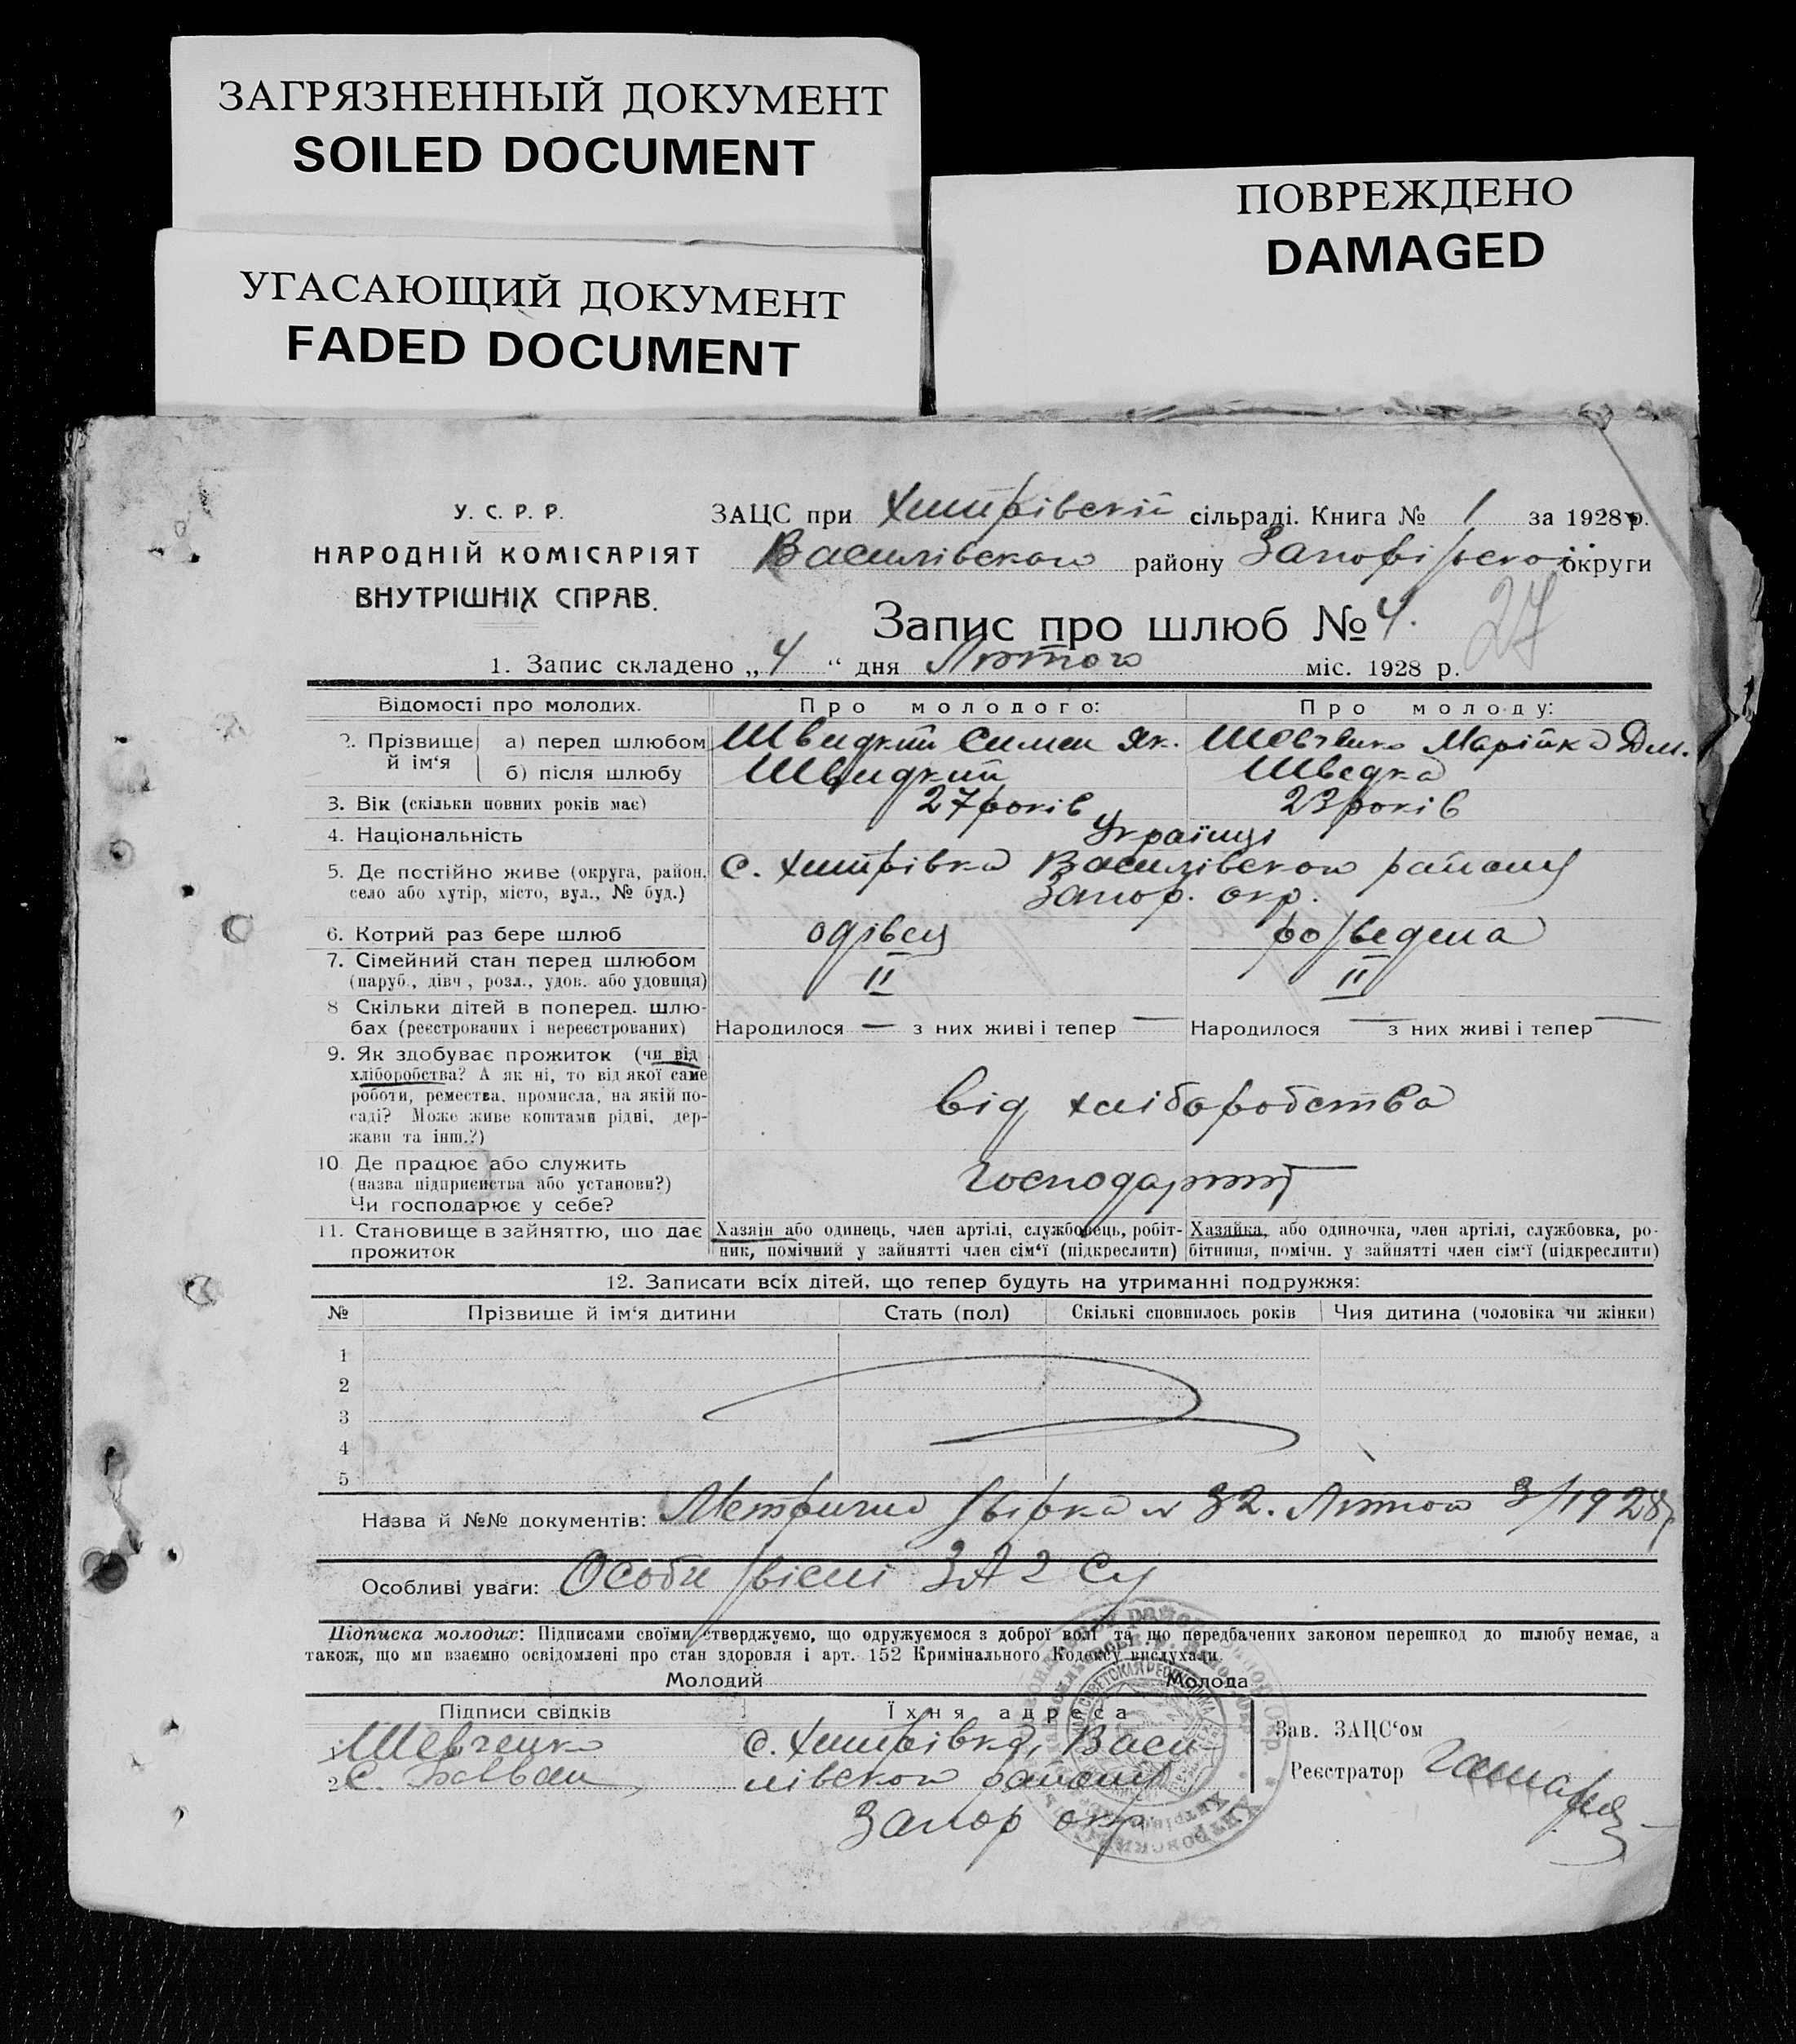 ЗАГРЯЗНЕННЫЙ ДОКУМЕНТ
SOILED DOCUMENT
УГАСАЮЩИЙ ДОКУМЕНТ
FADED DOCUMENT
ПОВРЕЖДЕНО
DAMAGED
У. С. Р. Р.
НАРОДНІЙ КОМІСАРІЯТ
ВНУТРІШНІХ СПРАВ.
ЗАЦС при Хитрівскій сільраді. Книга № 1 за 1928 р.
Василівского району Запоріжскої округи
Запис про шлюб № 4.
27
1. Запис складено „ 4 “ дня Лютого міс. 1928 р.
Відомості про молодих. Про молодого: Про молоду:
2. Прізвище й ім‘я а) перед шлюбом Швидкий Симен Як. Шевченко Марійка Дм.
б) після шлюбу Швидкий Шведка
3. Вік (скільки повних років має) 27 років 23 років
4. Національність Українці
5. Де постійно живе (округа, район, с. Хитрівка Василівского району
село або хутір, місто, вул., № буд.) Запор. окр.
6. Котрий раз бере шлюб одівец розведена
7. Сімейний стан перед шлюбом II II
(паруб., дівч., розл., удов. або удовиця)
8 Скільки дітей в поперед. шлю-
бах (реєстрованих і нереєстрованих) Народилося — з них живі і тепер — Народилося — з них живі і тепер —
9. Як здобуває прожиток (чи від
хліборобства? А як ні, то від якої саме
роботи, ремества, промисла, на якій по-
саді? Може живе коштами рідні, дер-
жави та інш.?)
від хліборобства
10. Де працює або служить
(назва підприємства або установи?)
Чи господарює у себе?
господарюют
11. Становище в зайняттю, що дає прожиток
Хазяїн або одинець, член артілі, службовець, робіт-
ник, помічний у зайнятті член сім‘ї (підкреслити)
Хазяйка, або одиночка, член артілі, службовка, ро-
бітниця, помічн. у зайнятті член сім‘ї (підкреслити)
12. Записати всіх дітей, що тепер будуть на утриманні подружжя:
№ Прізвище й ім‘я дитини Стать (пол) Скількі сповнилось років Чия дитина (чоловіка чи жінки)
1
2
3
4
5
Назва й №№ документів: Метрична звірка № 32. Лютого 3/1928р
Особливі уваги: Особи звісні ЗАЗСу
Підписка молодих: Підписами своїми стверджуємо, що одружуємося з доброї волі та що передбачених законом перешкод до шлюбу немає, а
також, що ми взаємно освідомлені про стан здоровля і арт. 152 Кримінального Кодексу вислухали.
Молодий Молода
Підписи свідків Їхня адреса
1 Шевченко с. Хитрівка, Васи-
2 С. лівского району
Запор окр.
Зав. ЗАЦС‘ом
Реєстратор